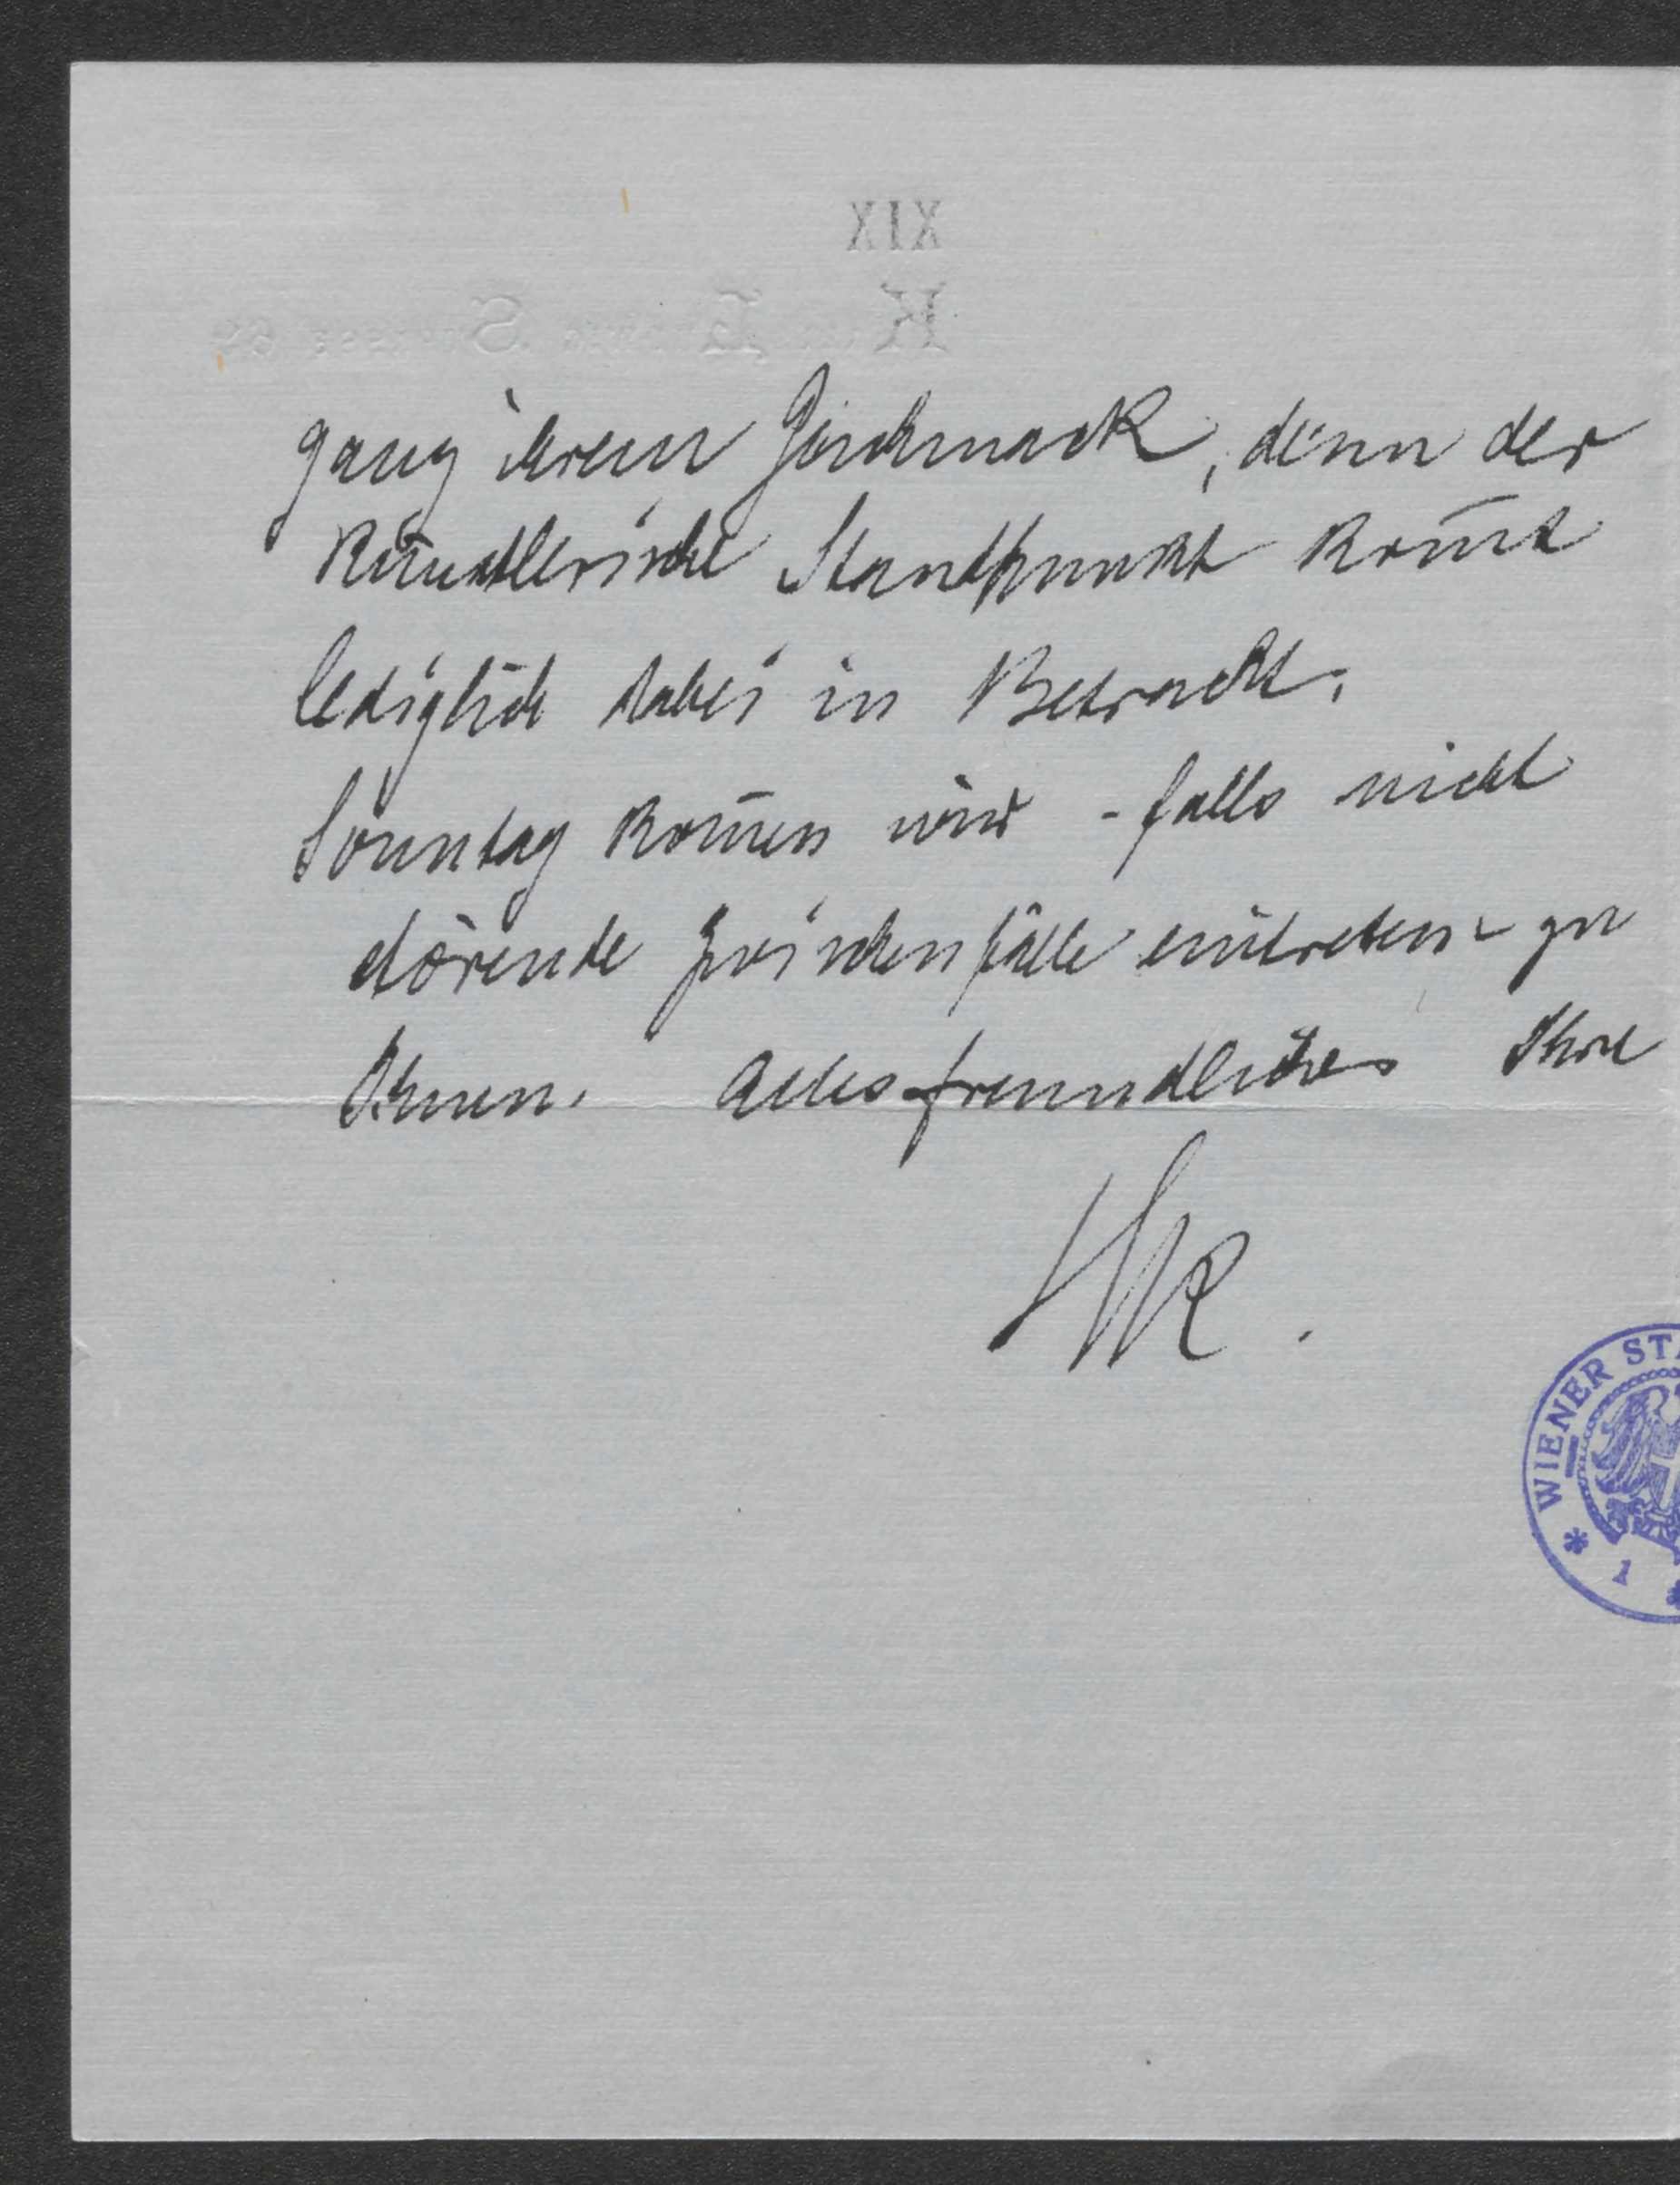 XIX
K L Strasse 69
ganz ihrem Geschmack, denn der
künstlerische Standpunkt kom̄t
lediglich dabei in Betracht.
Sonntag kom̄en wir - falls nicht
störende Zwischenfälle eintreten - zu
Ihnen. Alles freundliches Ihre
HK.
WIENER ST
1